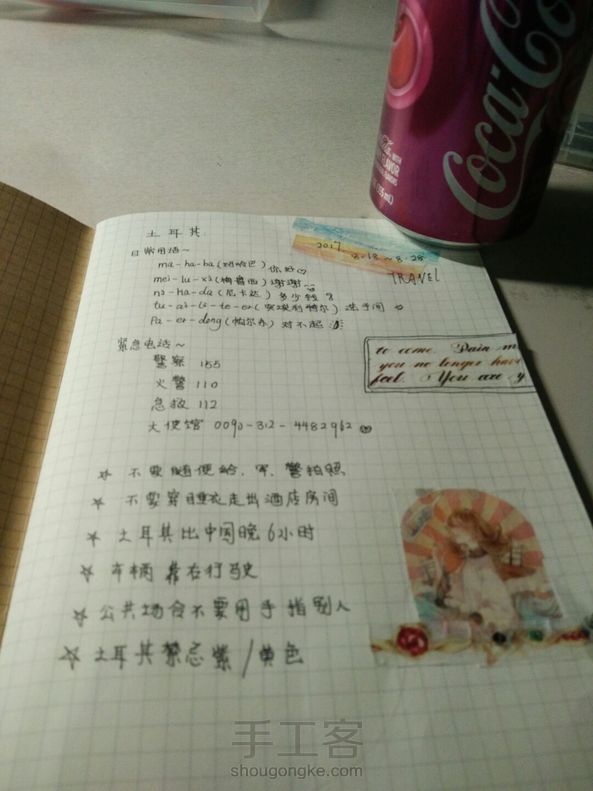 土耳其
日常用语~
ma-ha-ba(玛哈巴)你好
mei-lu-xi(梅鲁西)谢谢
ni-ka-da(尼卡达)多少钱?
洗手间
Pa-er-dong(帕尔东)对不起
紧急电话~
警察 155
火警 110
急救 112
大使馆 0090-312-4482962
☆ 不要随便给军、警拍照
☆ 不要穿睡衣走出酒店房间
☆ 土耳其比中国晚6小时
☆ 车辆靠右行驶
☆ 公共场合不要用手指别人
☆ 土耳其禁忌紫/黄色
2017
8.18~8.28
TRAVEL
to come. Pain m
you no longer have
feel. You are y
Coca-Co
FLAVOR
手工客
shougongke.com